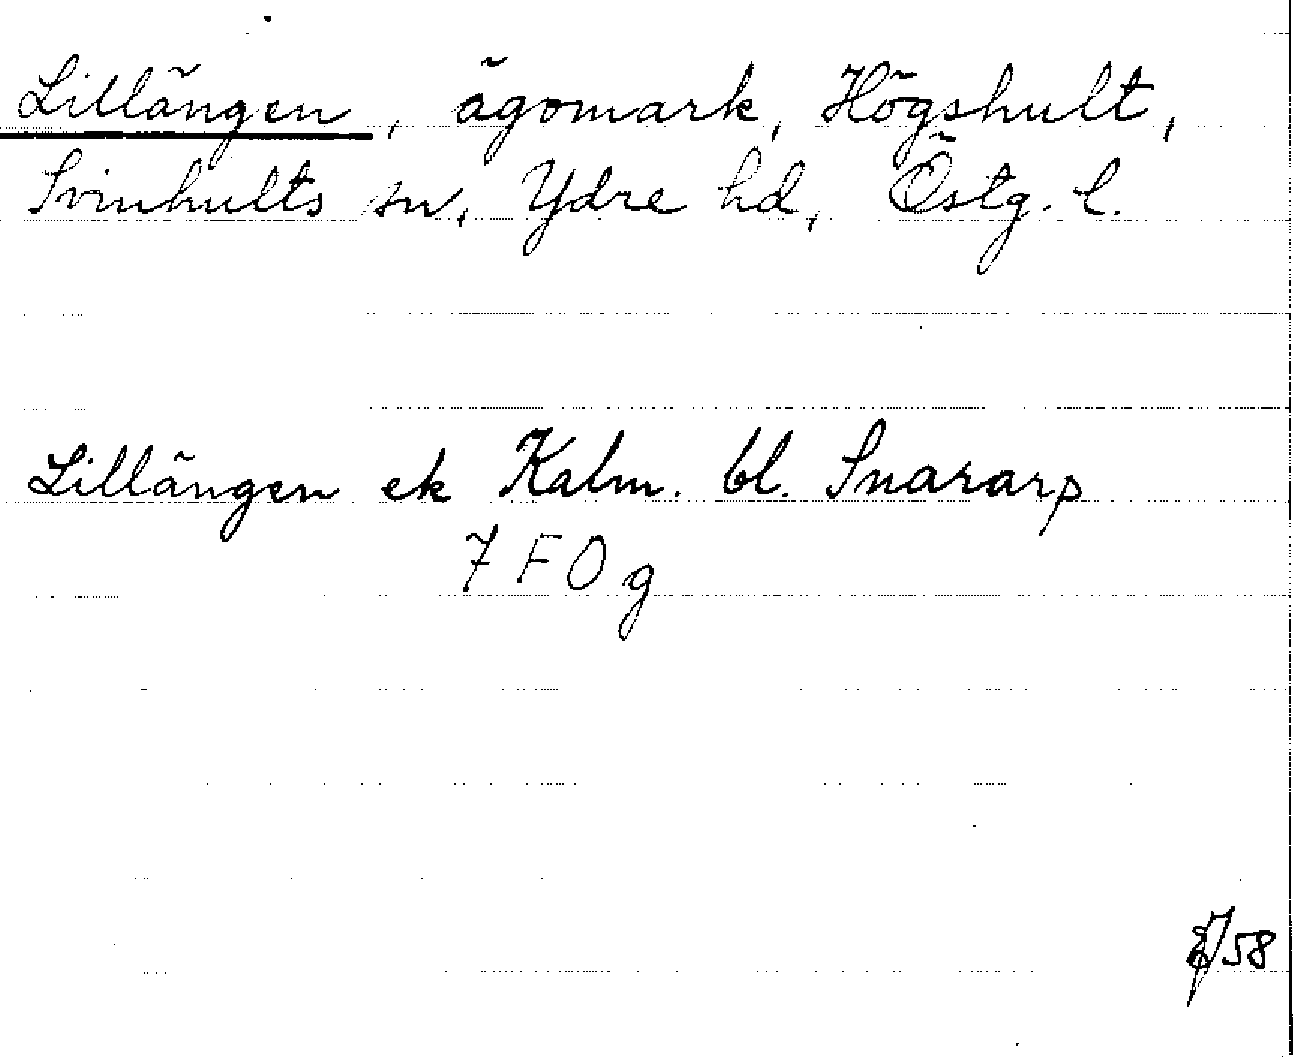 Lillängen, ägomark, Högshult,
Svinhults sn, Ydre hd, Östg. l.
Lillängen ek Kalm. bl. Snararp
7 F O g
58